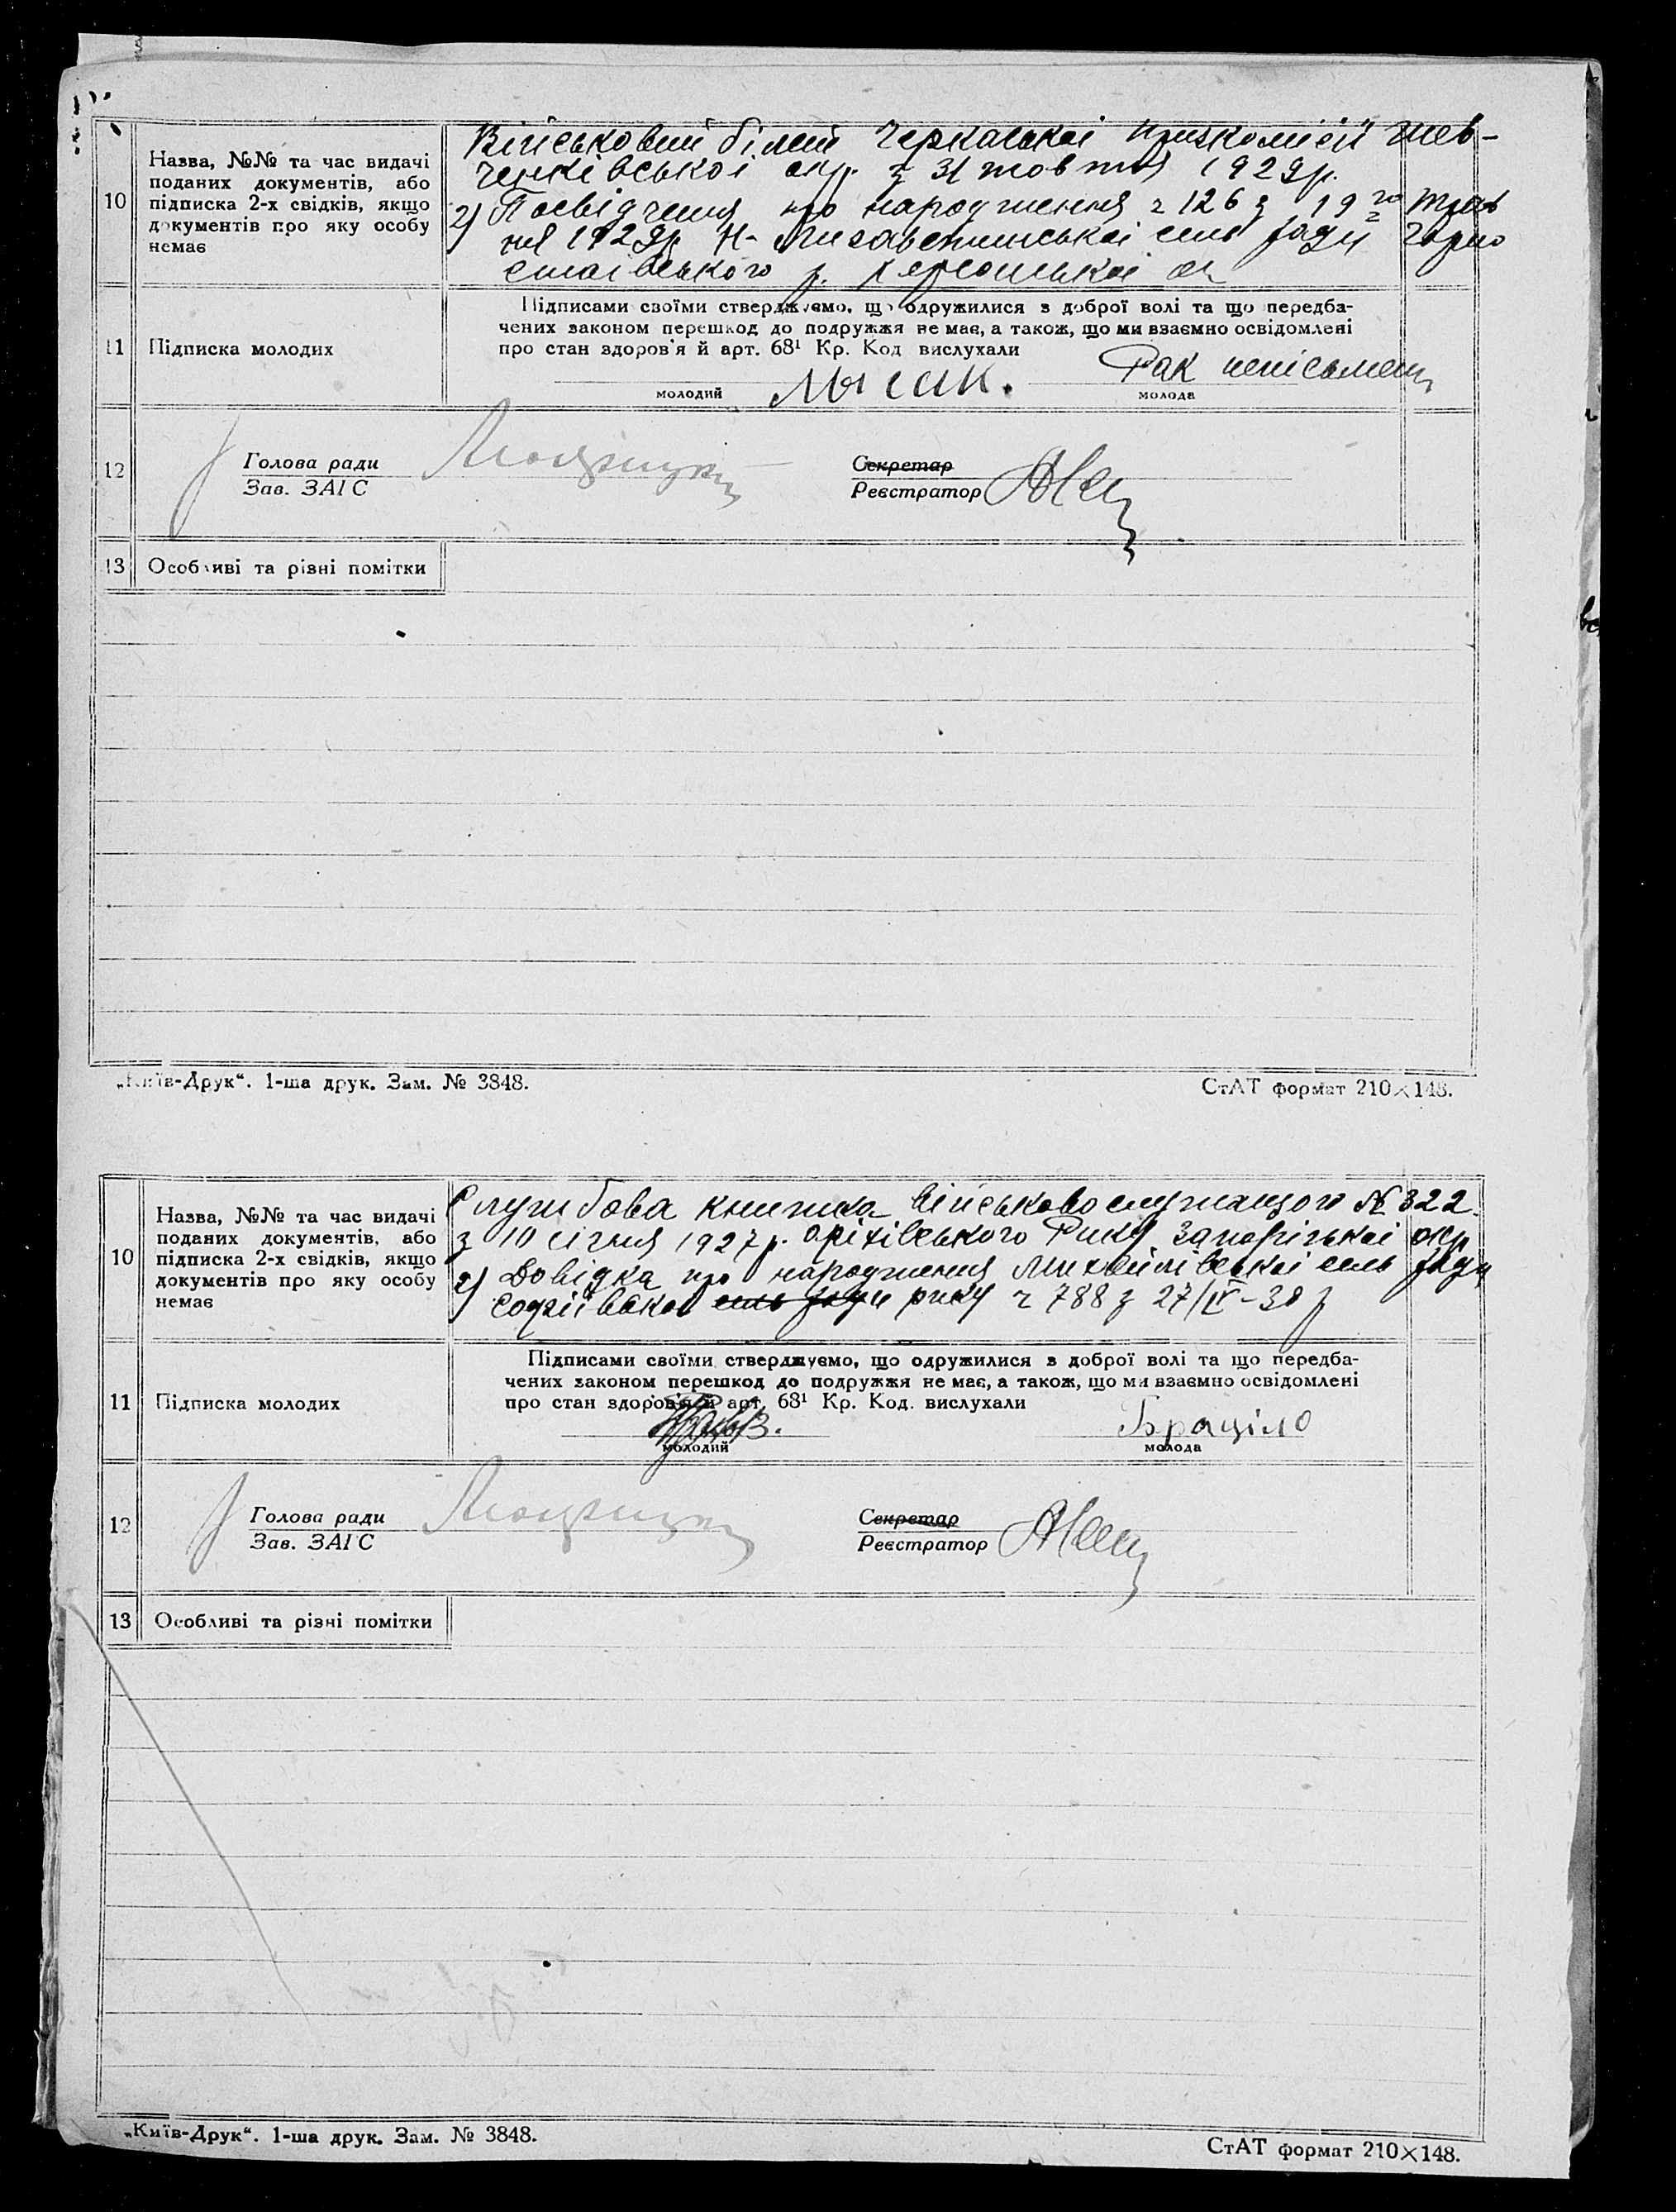 10
Назва, №№ та час видачі
поданих документів, або
підписка 2-х свідків, якщо
документів про яку особу
немає
Військовий білет Черкаської призкомісії Шев-
ченківської окр. з 31 жовтня 1929р.
2) Посвідчення про народження г 126 з 19го трав
ня 1929р. Н- Лизаветинської сель ради Чорно
р. Херсонської ок
11
Підписка молодих
Підписами своїми стверджуємо, що одружилися з доброї волі та що передба-
чених законом перешкод до подружжя не має, а також, що ми взаємно освідомлені
про стан здоров'я й арт. 68¹ Кр. Код вислухали
молодий Лысак.
Рак неписьмен
молода
12
Голова ради
Зав. ЗАГС
Секретар
Реєстратор
13 Особливі та різні помітки
„Київ-Друк“. 1-ша друк. Зам. № 3848.
СтАТ формат 210×148.
10
Назва, №№ та час видачі
поданих документів, або
підписка 2-х свідків, якщо
документів про яку особу
немає
Службова книжка військовослужащого № 322
з 10 січня 1927р. Оріхівського Рику Запорізької окр
2) Довідка про народження Михайлівської сель ради
сель ради рику г 788 з 27/IV-30 р
11
Підписка молодих
Підписами своїми стверджуємо, що одружилися з доброї волі та що передба-
чених законом перешкод до подружжя не має, а також, що ми взаємно освідомлені
про стан здоров'я й арт. 68¹ Кр. Код. вислухали
молодий
Браціло
молода
12
Голова ради
Зав. ЗАГС
Секретар
Реєстратор
13 Особливі та різні помітки
„Київ-Друк“. 1-ша друк. Зам. № 3848.
СтАТ формат 210×148.